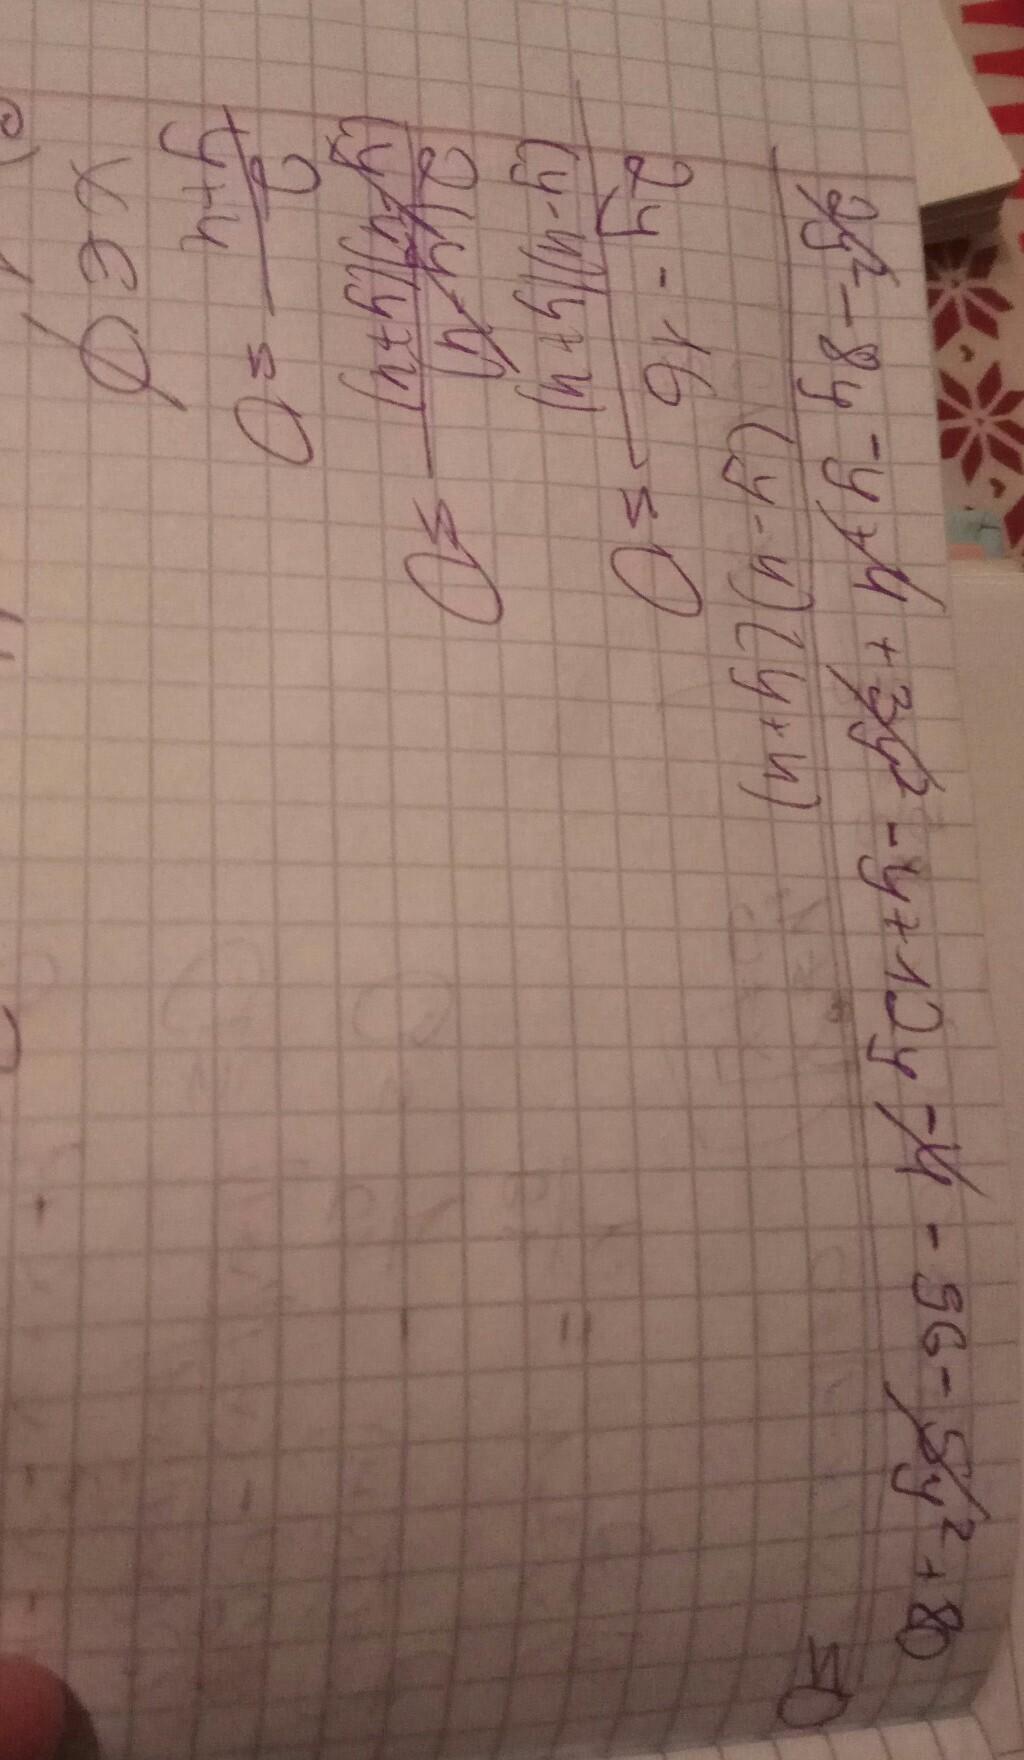 2y² - 8y - y + 4 + 3y² - y + 12y - 4 - 56 - 5y² + 80
= 0
(y-4)(y+4)
2y - 16
= 0
(y-4)(y+4)
2(y-4)
= 0
(y-4)(y+4)
2
= 0
y+4
x ∈ ∅